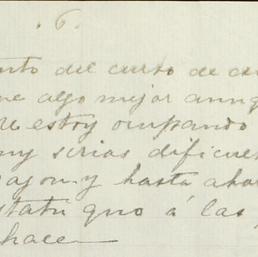 . 6.
nto del curto de
algo mejor aunq
estoy ocupando
muy serias dificul
y hasta ahor
statu quo á las
hace